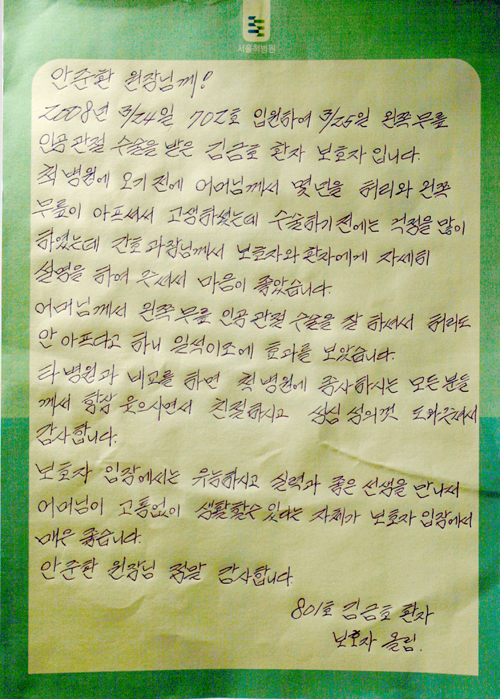 서울척병원
안준환 원장님께!
2008년 3/24일 702호 입원하여 3/25일 왼쪽무릎
인공관절 수술을 받은 김금호 환자 보호자입니다.
척병원에 오기전에 어머님께서 몇년을 허리와 왼쪽
무릎이 아프셔서 고생하셨는데 수술하기전에는 걱정을 많이
하였는데 간호과장님께서 보호자와 환자에게 자세히
설명을 하여 주셔서 마음이 좋았습니다.
어머님께서 왼쪽무릎 인공관절 수술을 잘 하셔서 허리도
안 아프다고 하니 일석이조에 효과를 보았습니다.
타병원과 비교를 하면 척병원에 종사하시는 모든분들
께서 항상 웃으시면서 친절하시고 성심 성의껏 도와주셔서
감사합니다.
보호자 입장에서는 유능하시고 실력과 좋은 선생을 만나서
어머님이 고통없이 생활할수있다는 자체가 보호자입장에서
매은 좋습니다.
안준환 원장님 정말 감사합니다.
801호 김금호 환자
보호자 올림.